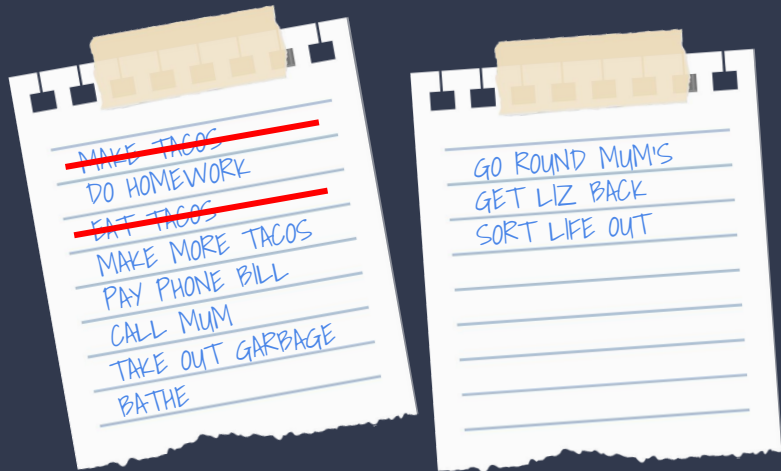 MAKE TACOS
DO HOMEWORK
EAT TACOS
MAKE MORE TACOS
PAY PHONE BILL
CALL MUM
TAKE OUT GARBAGE
BATHE
GO ROUND MUM'S
GET LIZ BACK
SORT LIFE OUT